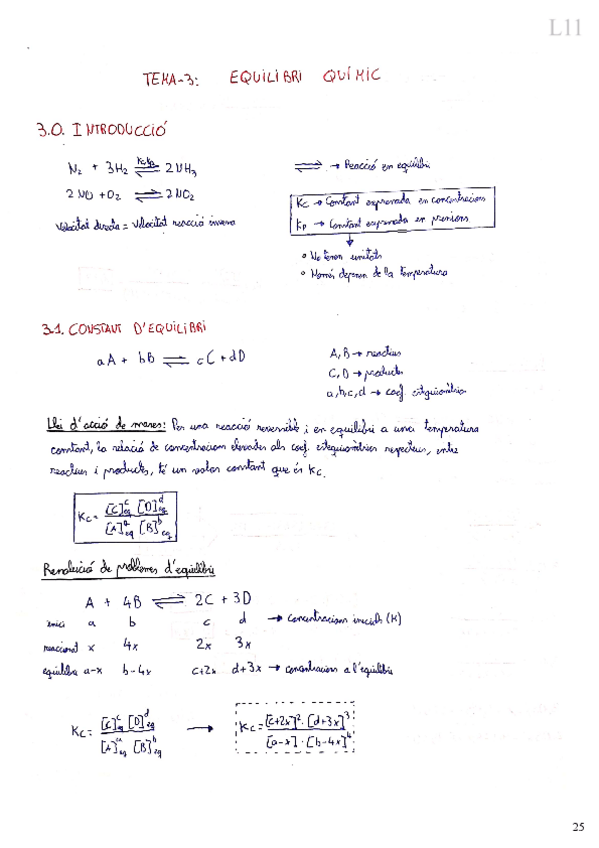 L11
TEMA-3: EQUILIBRI QUÍMIC
3.0. INTRODUCCIÓ
N₂ + 3H₂ ⇌ 2NH₃ (Kc, Kp)
⇌ → Reacció en equilibri
2 NO + O₂ ⇌ 2NO₂
Kc → Constant expresada en concentracions
Kp → Constant expresada en pressions
Velocitat directa = Velocitat reacció inversa
• No tenen unitats
• Només depenen de la temperatura
3.1. CONSTANT D'EQUILIBRI
aA + bB ⇌ cC + dD
A, B → reactius
C, D → productes
a, b, c, d → coef. estequiomètrics
Llei d'acció de masses: Per una reacció reversible i en equilibri a una temperatura
constant, la relació de concentracions elevades als coef. estequiomètrics respectius, entre
reactius i productes, té un valor constant que és Kc.
Kc = [C]ᶜeq [D]ᵈeq / [A]ᵃeq [B]ᵇeq
Resolució de problemes d'equilibri
A + 4B ⇌ 2C + 3D
inici a b c d → concentracions inicials (M)
reaccionat x 4x 2x 3x
equilibri a-x b-4x c+2x d+3x → concentracions a l'equilibri
Kc = [C]ᶜeq [D]ᵈeq / [A]ᵃeq [B]ᵇeq → Kc = [c+2x]² · [d+3x]³ / [a-x] · [b-4x]⁴
25